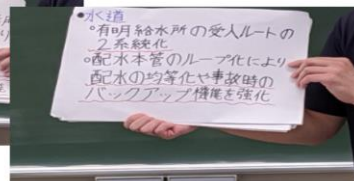 ●水道
○有明給水所の受入ルートの
2系統化
○配水本管のループ化により
配水の均等化や事故時の
バックアップ機能を強化